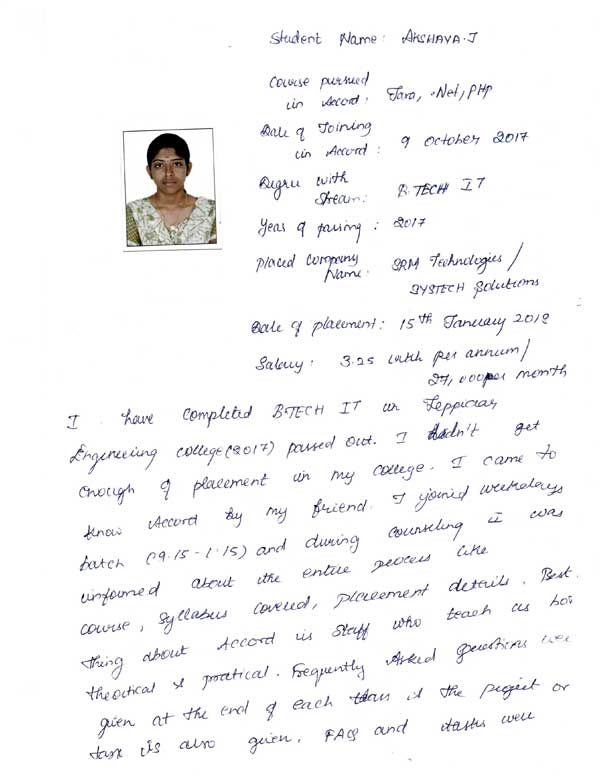 Student Name: AKSHAYA.J
Course pursued
in Accord: Java, .Net, PHP
Date of Joining
in Accord: 9 October 2017
Degree with
Stream: B.TECH IT
Year of passing: 2017
Placed Company
Name: SRM Technologies /
SYSTECH Solutions
Date of placement: 15th January 2018
Salary: 3.25 lakh per annum/
27,000per month
I have completed B.TECH IT in Jeppiaar
Engineering college(2017) passed out. I didn't get
enough of placement in my college. I came to
know Accord by my friend. I joined weekdays
batch (9.15-1.15) and during counseling I was
informed about the entire process like
course, syllabus covered, placement details. Best
thing about Accord is Staff who teach us both
theoitical & practical. Frequently Asked Questions were
given at the end of each class & the project or
task is also given. FAQ and tasks were